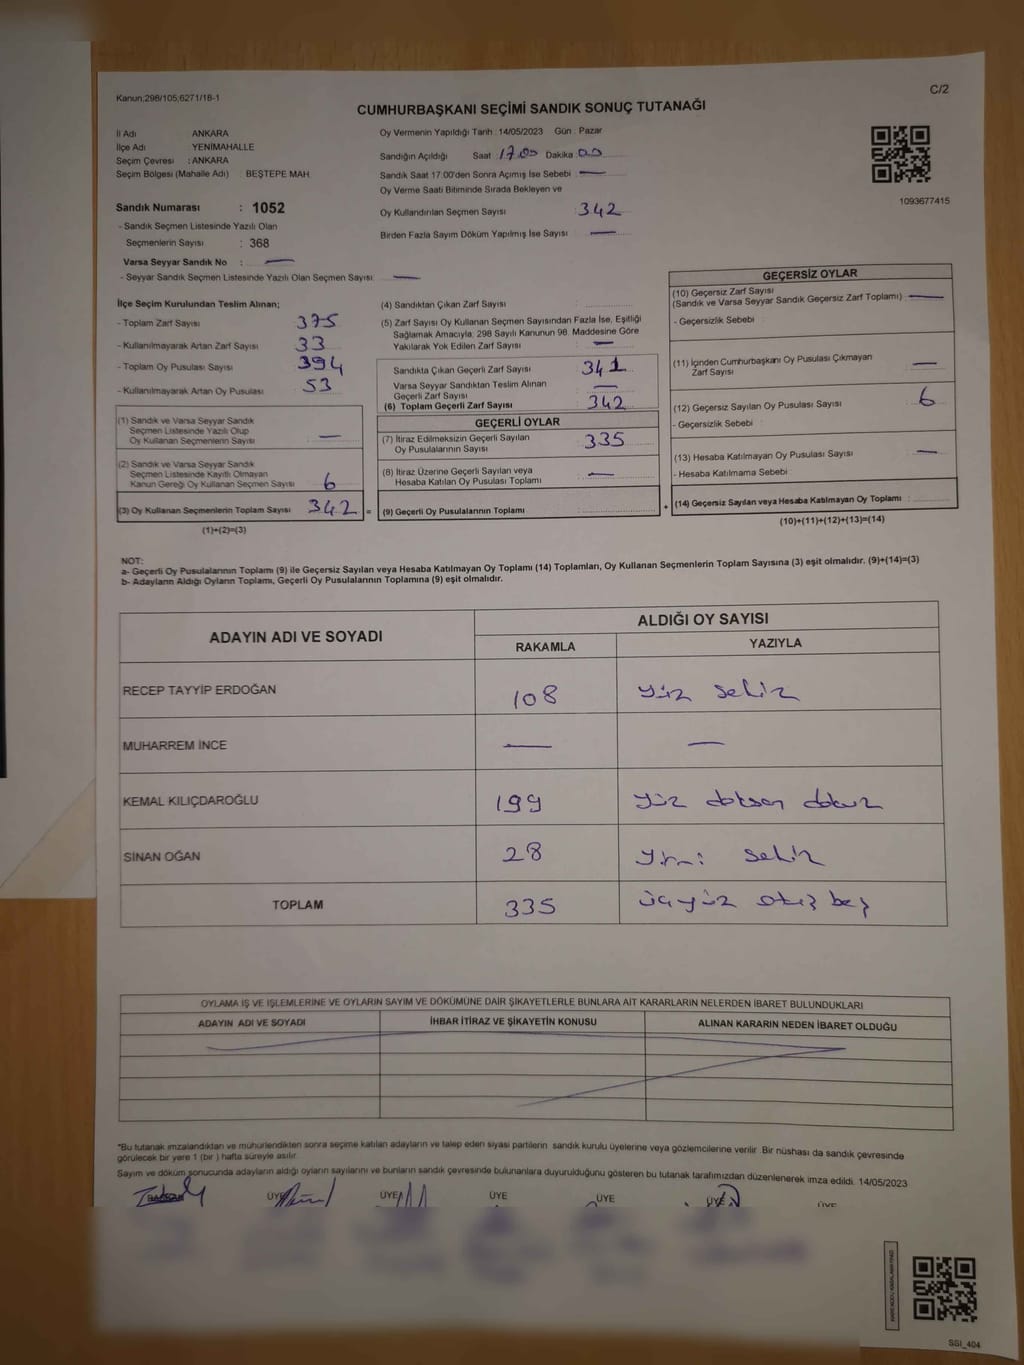 Kanun:298/105;6271/18-1
C/2
CUMHURBAŞKANI SEÇİMİ SANDIK SONUÇ TUTANAĞI
İl Adı ANKARA
İlçe Adı YENİMAHALLE
Seçim Çevresi : ANKARA
Seçim Bölgesi (Mahalle Adı) : BEŞTEPE MAH.
Sandık Numarası : 1052
- Sandık Seçmen Listesinde Yazılı Olan
Seçmenlerin Sayısı : 368
Varsa Seyyar Sandık No : —
- Seyyar Sandık Seçmen Listesinde Yazılı Olan Seçmen Sayısı: —
Oy Vermenin Yapıldığı Tarih : 14/05/2023 Gün : Pazar
Sandığın Açıldığı Saat : 17.00 Dakika : 00
Sandık Saat 17:00'den Sonra Açımış İse Sebebi : —
Oy Verme Saati Bitiminde Sırada Bekleyen ve
Oy Kullandırılan Seçmen Sayısı : 342
Birden Fazla Sayım Döküm Yapılmış İse Sayısı : —
1093677415
İlçe Seçim Kurulundan Teslim Alınan;
- Toplam Zarf Sayısı : 375
- Kullanılmayarak Artan Zarf Sayısı : 33
- Toplam Oy Pusulası Sayısı : 394
- Kullanılmayarak Artan Oy Pusulası : 53
(1) Sandık ve Varsa Seyyar Sandık
Seçmen Listesinde Yazılı Olup
Oy Kullanan Seçmenlerin Sayısı : —
(2) Sandık ve Varsa Seyyar Sandık
Seçmen Listesinde Kayıtlı Olmayan
Kanun Gereği Oy Kullanan Seçmen Sayısı : 6
(3) Oy Kullanan Seçmenlerin Toplam Sayısı : 342 =
(1)+(2)=(3)
(4) Sandıktan Çıkan Zarf Sayısı :
(5) Zarf Sayısı Oy Kullanan Seçmen Sayısından Fazla İse, Eşitliği
Sağlamak Amacıyla; 298 Sayılı Kanunun 98. Maddesine Göre
Yakılarak Yok Edilen Zarf Sayısı : —
Sandıkta Çıkan Geçerli Zarf Sayısı : 341
Varsa Seyyar Sandıktan Teslim Alınan
Geçerli Zarf Sayısı : —
(6) Toplam Geçerli Zarf Sayısı : 342
GEÇERLİ OYLAR
(7) İtiraz Edilmeksizin Geçerli Sayılan
Oy Pusulalarının Sayısı : 335
(8) İtiraz Üzerine Geçerli Sayılan veya
Hesaba Katılan Oy Pusulası Toplamı : —
(9) Geçerli Oy Pusulalarının Toplamı : +
GEÇERSİZ OYLAR
(10) Geçersiz Zarf Sayısı
(Sandık ve Varsa Seyyar Sandık Geçersiz Zarf Toplamı) : —
- Geçersizlik Sebebi :
(11) İçinden Cumhurbaşkanı Oy Pusulası Çıkmayan
Zarf Sayısı : —
(12) Geçersiz Sayılan Oy Pusulası Sayısı : 6
- Geçersizlik Sebebi :
(13) Hesaba Katılmayan Oy Pusulası Sayısı : —
- Hesaba Katılmama Sebebi :
(14) Geçersiz Sayılan veya Hesaba Katılmayan Oy Toplamı :
(10)+(11)+(12)+(13)=(14)
NOT:
a- Geçerli Oy Pusulalarının Toplamı (9) ile Geçersiz Sayılan veya Hesaba Katılmayan Oy Toplamı (14) Toplamları, Oy Kullanan Seçmenlerin Toplam Sayısına (3) eşit olmalıdır. (9)+(14)=(3)
b- Adayların Aldığı Oyların Toplamı, Geçerli Oy Pusulalarının Toplamına (9) eşit olmalıdır.
ADAYIN ADI VE SOYADI ALDIĞI OY SAYISI
RAKAMLA YAZIYLA
RECEP TAYYİP ERDOĞAN 108 yüz sekiz
MUHARREM İNCE — —
KEMAL KILIÇDAROĞLU 199 yüz doksan dokuz
SİNAN OĞAN 28 yirmi sekiz
TOPLAM 335 üçyüz otuz beş
OYLAMA İŞ VE İŞLEMLERİNE VE OYLARIN SAYIM VE DÖKÜMÜNE DAİR ŞİKAYETLERLE BUNLARA AİT KARARLARIN NELERDEN İBARET BULUNDUKLARI
ADAYIN ADI VE SOYADI İHBAR İTİRAZ VE ŞİKAYETİN KONUSU ALINAN KARARIN NEDEN İBARET OLDUĞU
*Bu tutanak imzalandıktan ve mühürlendikten sonra seçime katılan adayların ve talep eden siyasi partilerin sandık kurulu üyelerine veya gözlemcilerine verilir. Bir nüshası da sandık çevresinde
görülecek bir yere 1 (bir ) hafta süreyle asılır.
Sayım ve döküm sonucunda adayların aldığı oyların sayılarını ve bunların sandık çevresinde bulunanlara duyurulduğunu gösteren bu tutanak tarafımızdan düzenlenerek imza edildi. 14/05/2023
BAŞKAN ÜYE ÜYE ÜYE ÜYE ÜYE ÜYE
SGI_404